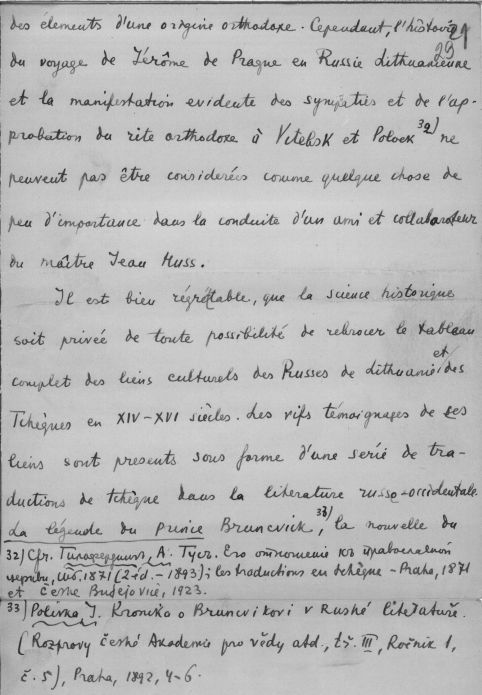 des élements d'une origine orthodoxe. Cependant, l'histoire
29
du voyage de Jérôme de Prague en Russie Lithuanienne
et la manifestation evidente des sympaties et de l'ap-
probation du rite orthodoxe à Vitebsk et Polock 32) ne
peuvent pas être considerées comme quelque chose de
peu d'importance dans la conduite d'un ami et collaborateur
du maître Jean Huss.
Il est bien régrétable, que la science historique
soit privée de toute possibilité de retracer le tableau
complet des liens culturels des Russes de Lithuanie et des
Tchèques en XIV-XVI siècles. Les vifs témoignages de ces
liens sont presents sous forme d'une serié de tra-
ductions de tchèque dans la literature russe-occidentale.
La légende du prince Bruncvick, 33) la nouvelle du
32) Cfr. А. Гус. Его отношение къ православной
церкви, Спб. 1871 (2 éd. - 1893); les traductions en tchèque - Praha, 1871
et České Budějovice, 1923.
33) Polívka J. Kronika o Bruncvikovi v Ruské literatuře.
(Rozpravy České Akademie pro vědy atd., tř. III, Ročnik 1,
č. 5), Praha, 1892, 4-6.